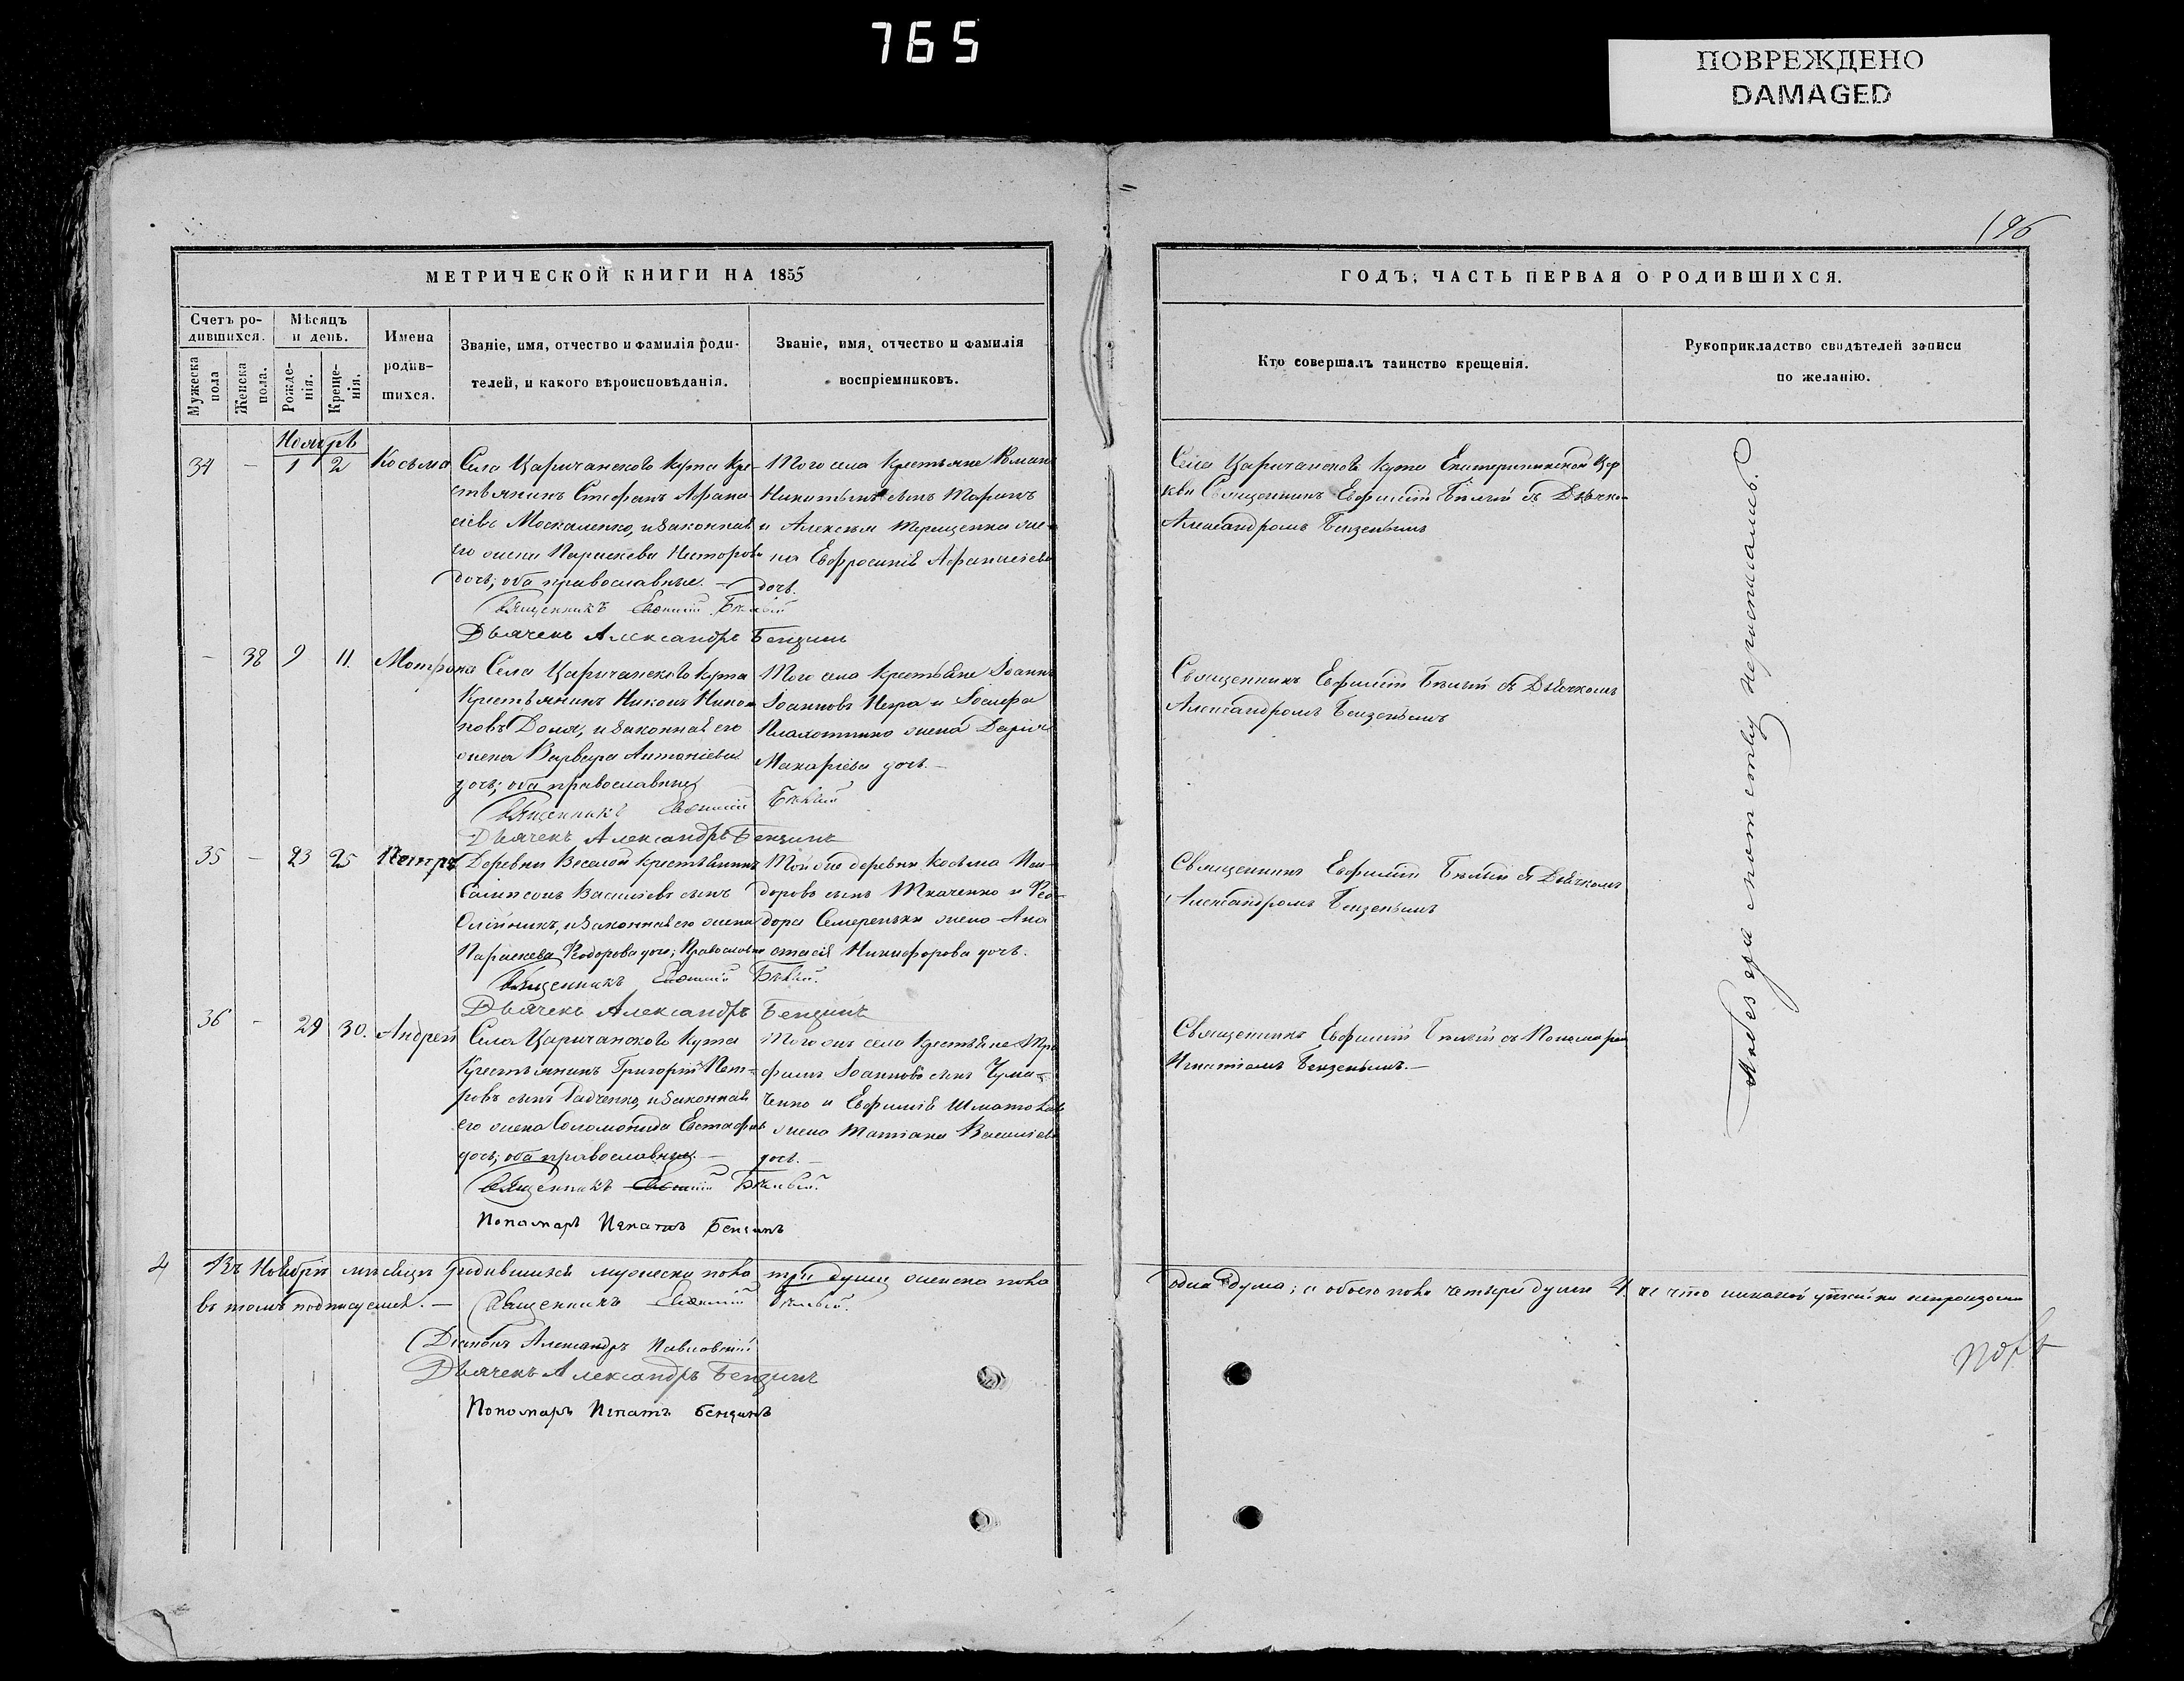 765
ПОВРЕЖДЕНО
DAMAGED
196
МЕТРИЧЕСКОЙ КНИГИ НА 1855
Счетъ ро-
дившихся.
Мужеска
пола
Женска
пола.
Мѣсяцъ
и день.
Рожде-
нія.
Креще-
нія.
Имена
родив-
шихся.
Званіе, имя, отчество и фамилія роди-
телей, и какого вѣроисповѣданія.
Званіе, имя, отчество и фамилія
воспріемниковъ.
Ноябрь
34 - 1 2 Косьма
Села Царичанскаго Кута Кре-
стьянинъ Стефанъ Афана-
сіевъ Москаленко, и законная
его жена Параскева
дочь; оба православные. -
Того села Крестьяне Романъ
Никитинъ сынъ
и Алексѣя Терещенка же-
на Евфросинія Афанасіева
дочь.
Священникъ Евфимій Бѣлый
Дьячекъ Александръ Бензинъ
- 38 9 11. Мотрона
Села Царичанскаго Кута
Крестьянинъ Никонъ Никоно-
новъ Доля, и законная его
жена Варвара Антоніева
дочь; оба православные
Того села Крестьяне Іоаннъ
Іоанновъ и Іосифа
жена Дарія
Макаріева дочь. -
Священникъ Евфимій Бѣлый
Дьячекъ Александръ Бензинъ
35 - 23 25 Петръ
Деревни Веселой Крестьянинъ
Сампсонъ Василіевъ сынъ
Олійникъ, и законная его жена
Параскева Феодорова дочь; Православные
Той же деревни Косьма
доровъ сынъ Ткаченко и Фео-
дора Семереньки жена Ана-
стасія Никифорова дочь.
Священникъ Евфимій Бѣлый.
Дьячекъ Александръ Бензинъ
36 - 29 30. Андрей
Села Царичанскаго Кута
Крестьянинъ Григорій Пет-
ровъ сынъ Радченко, и законная
его жена Соломонида Евстафіева
дочь; оба православные. -
Того же села Крестьяне Тро-
фимъ Іоанновъ сынъ Чума-
ченко и Евфимія
жена Татіана Василіева
дочь. -
Священникъ Евфимій Бѣлый.
Пономарь Игнатъ Бензинъ
4 Въ Ноябрѣ мѣсяцѣ родившихся мужеска пола три души женска пола
въ томъ подписуемся. - Священникъ Евфимій Бѣлый.
Діаконъ Александръ Павловскій
Дьячекъ Александръ Бензинъ
Пономарь Игнатъ Бензинъ
ГОДЪ, ЧАСТЬ ПЕРВАЯ О РОДИВШИХСЯ.
Кто совершалъ таинство крещенія.
Рукоприкладство свидѣтелей записи
по желанію.
Села Царичанскаго Кута Екатерининской Цер
кви Священникъ Евфимій Бѣлый съ Дьячкомъ
Александромъ Бензенымъ
Священникъ Евфимій Бѣлый съ Дьячкомъ
Александромъ Бензенымъ
Священникъ Евфимій Бѣлый съ Дьячкомъ
Александромъ Бензенымъ
Священникъ Евфимій Бѣлый съ Пономаремъ
Игнатіемъ Бензенымъ. -
одна душа; а обоего пола четыре души 4. и что никакой утайки непроизошло